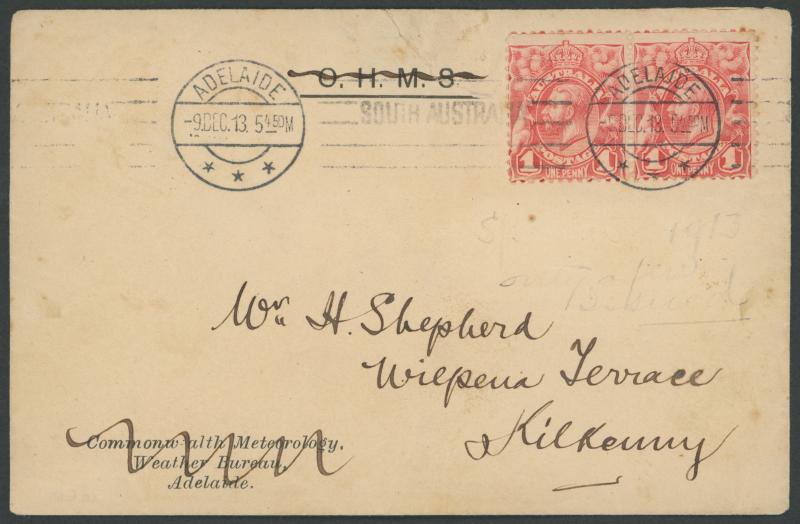 O. H. M. S
ADELAIDE
-9.DEC.13. 5 45PM
SOUTH AUSTRALIA
AUSTRALIA
POSTAGE
1 1
ONE PENNY
AUSTRALIA
POSTAGE
1 1
ONE PENNY
DEC.13
1913
Mr H. Shepherd
Wilpena Terrace
Kilkenny
Commonw-alth Meteorology,
Weather Bureau,
Adelaide.